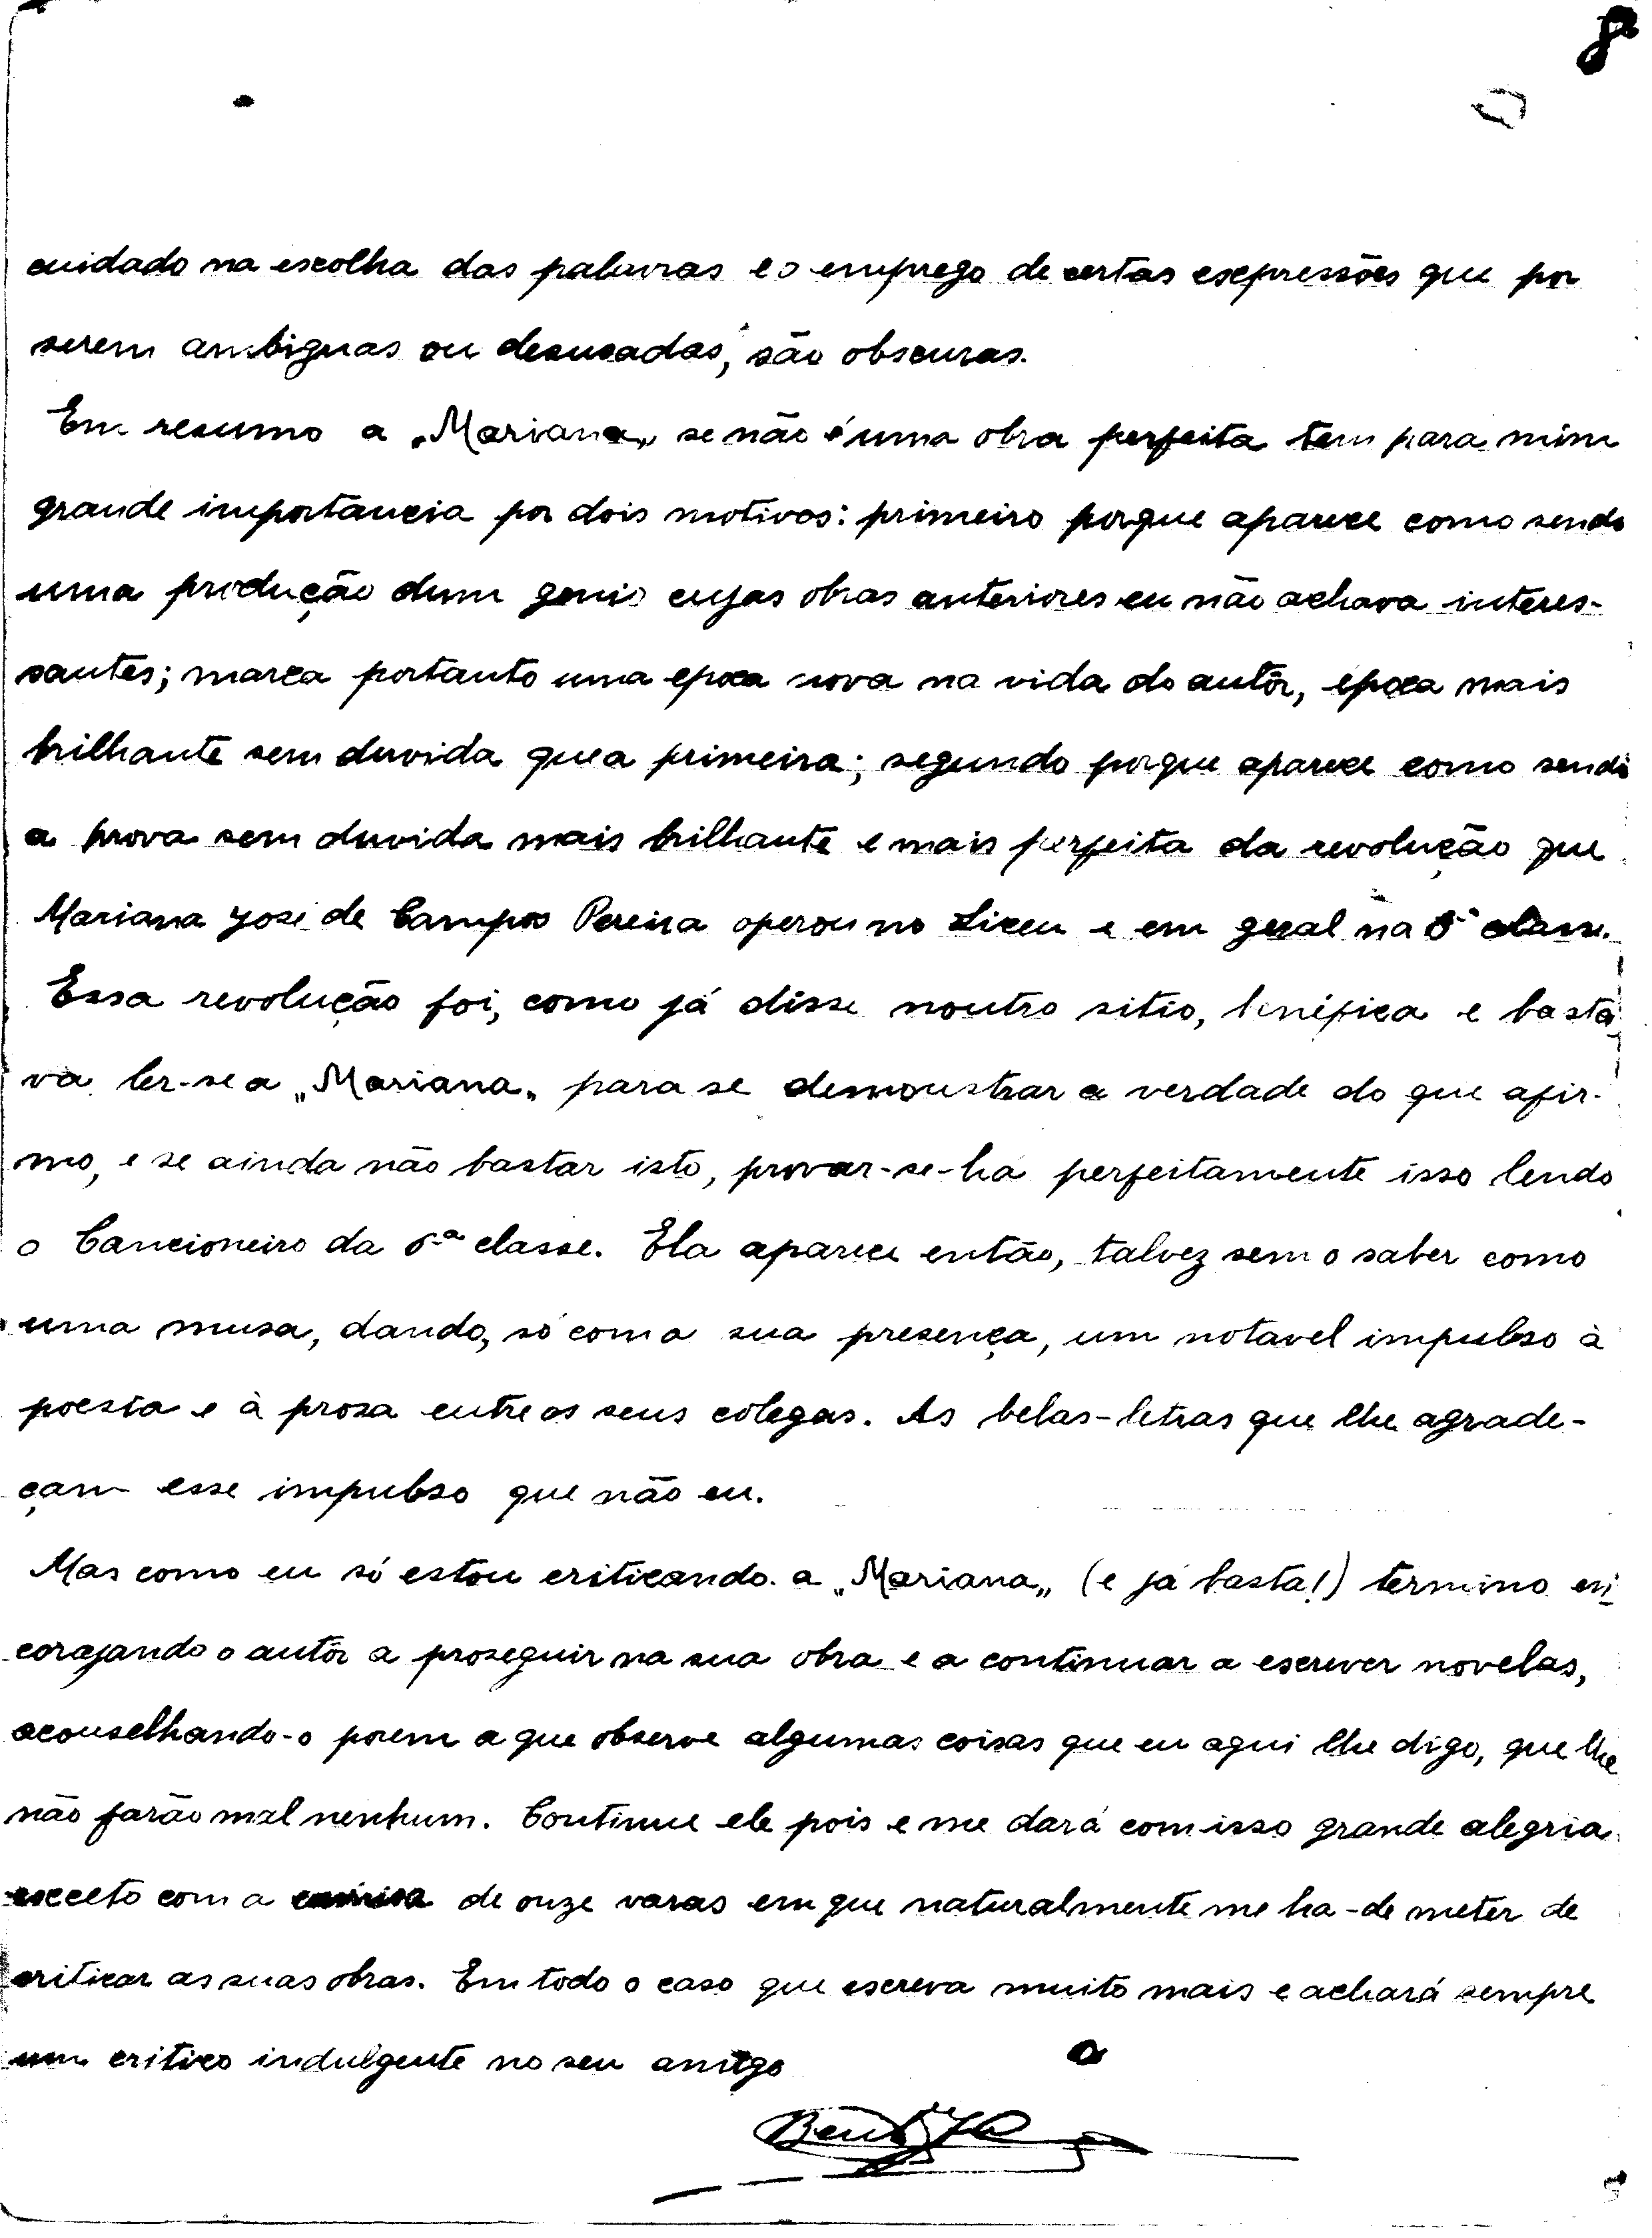 8
cuidado na escolha das palavras e o emprego de certas expressões que por
serem ambiguas ou desusadas, são obscuras.
Em resumo a „Mariana„ se não é uma obra perfeita tem para mim
grande importancia por dois motivos: primeiro porque aparece como sendo
uma produção dum genio cujas obras anteriores eu não achava interes-
santes; marca portanto uma epoca nova na vida do autôr, epoca mais
brilhante sem duvida que a primeira; segundo porque aparece como sendo
a prova sem duvida mais brilhante e mais perfeita da revolução que
Mariana José de Campos Pereira operou no Liceu e em geral na 6ª classe.
Essa revolução foi, como já disse noutro sitio, benéfica e basta
va ler-se a „Mariana„ para se demonstrar a verdade do que afir-
mo, e se ainda não bastar isto, provar-se-há perfeitamente isso lendo
o Cancioneiro da 6ª classe. Ela aparece então, talvez sem o saber como
uma musa, dando, só com a sua presença, um notavel impulso à
poesia e à prosa entre os seus colegas. As belas-letras que lhe agrade-
çam esse impulso que não eu.
Mas como eu só estou criticando a „Mariana„ (e já basta!) termino en
corajando o autôr a proseguir na sua obra e a continuar a escrever novelas,
aconselhando-o porem a que observe algumas coisas que eu aqui lhe digo, que lhe
não farão mal nenhum. Continue ele pois e me dará com isso grande alegria
excepto com a camisa de onze varas em que naturalmente me ha-de meter de
criticar as suas obras. Em todo o caso que escreva muito mais e achará sempre
um critico indulgente no seu amigo